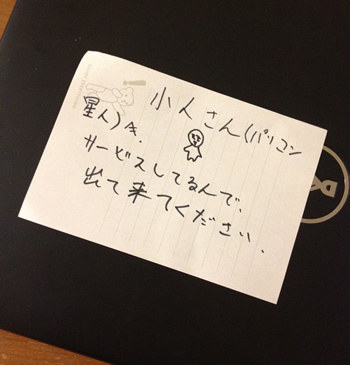 小人さん(パソコン
星人)今、
サービスしてるんで、
出て来てください、